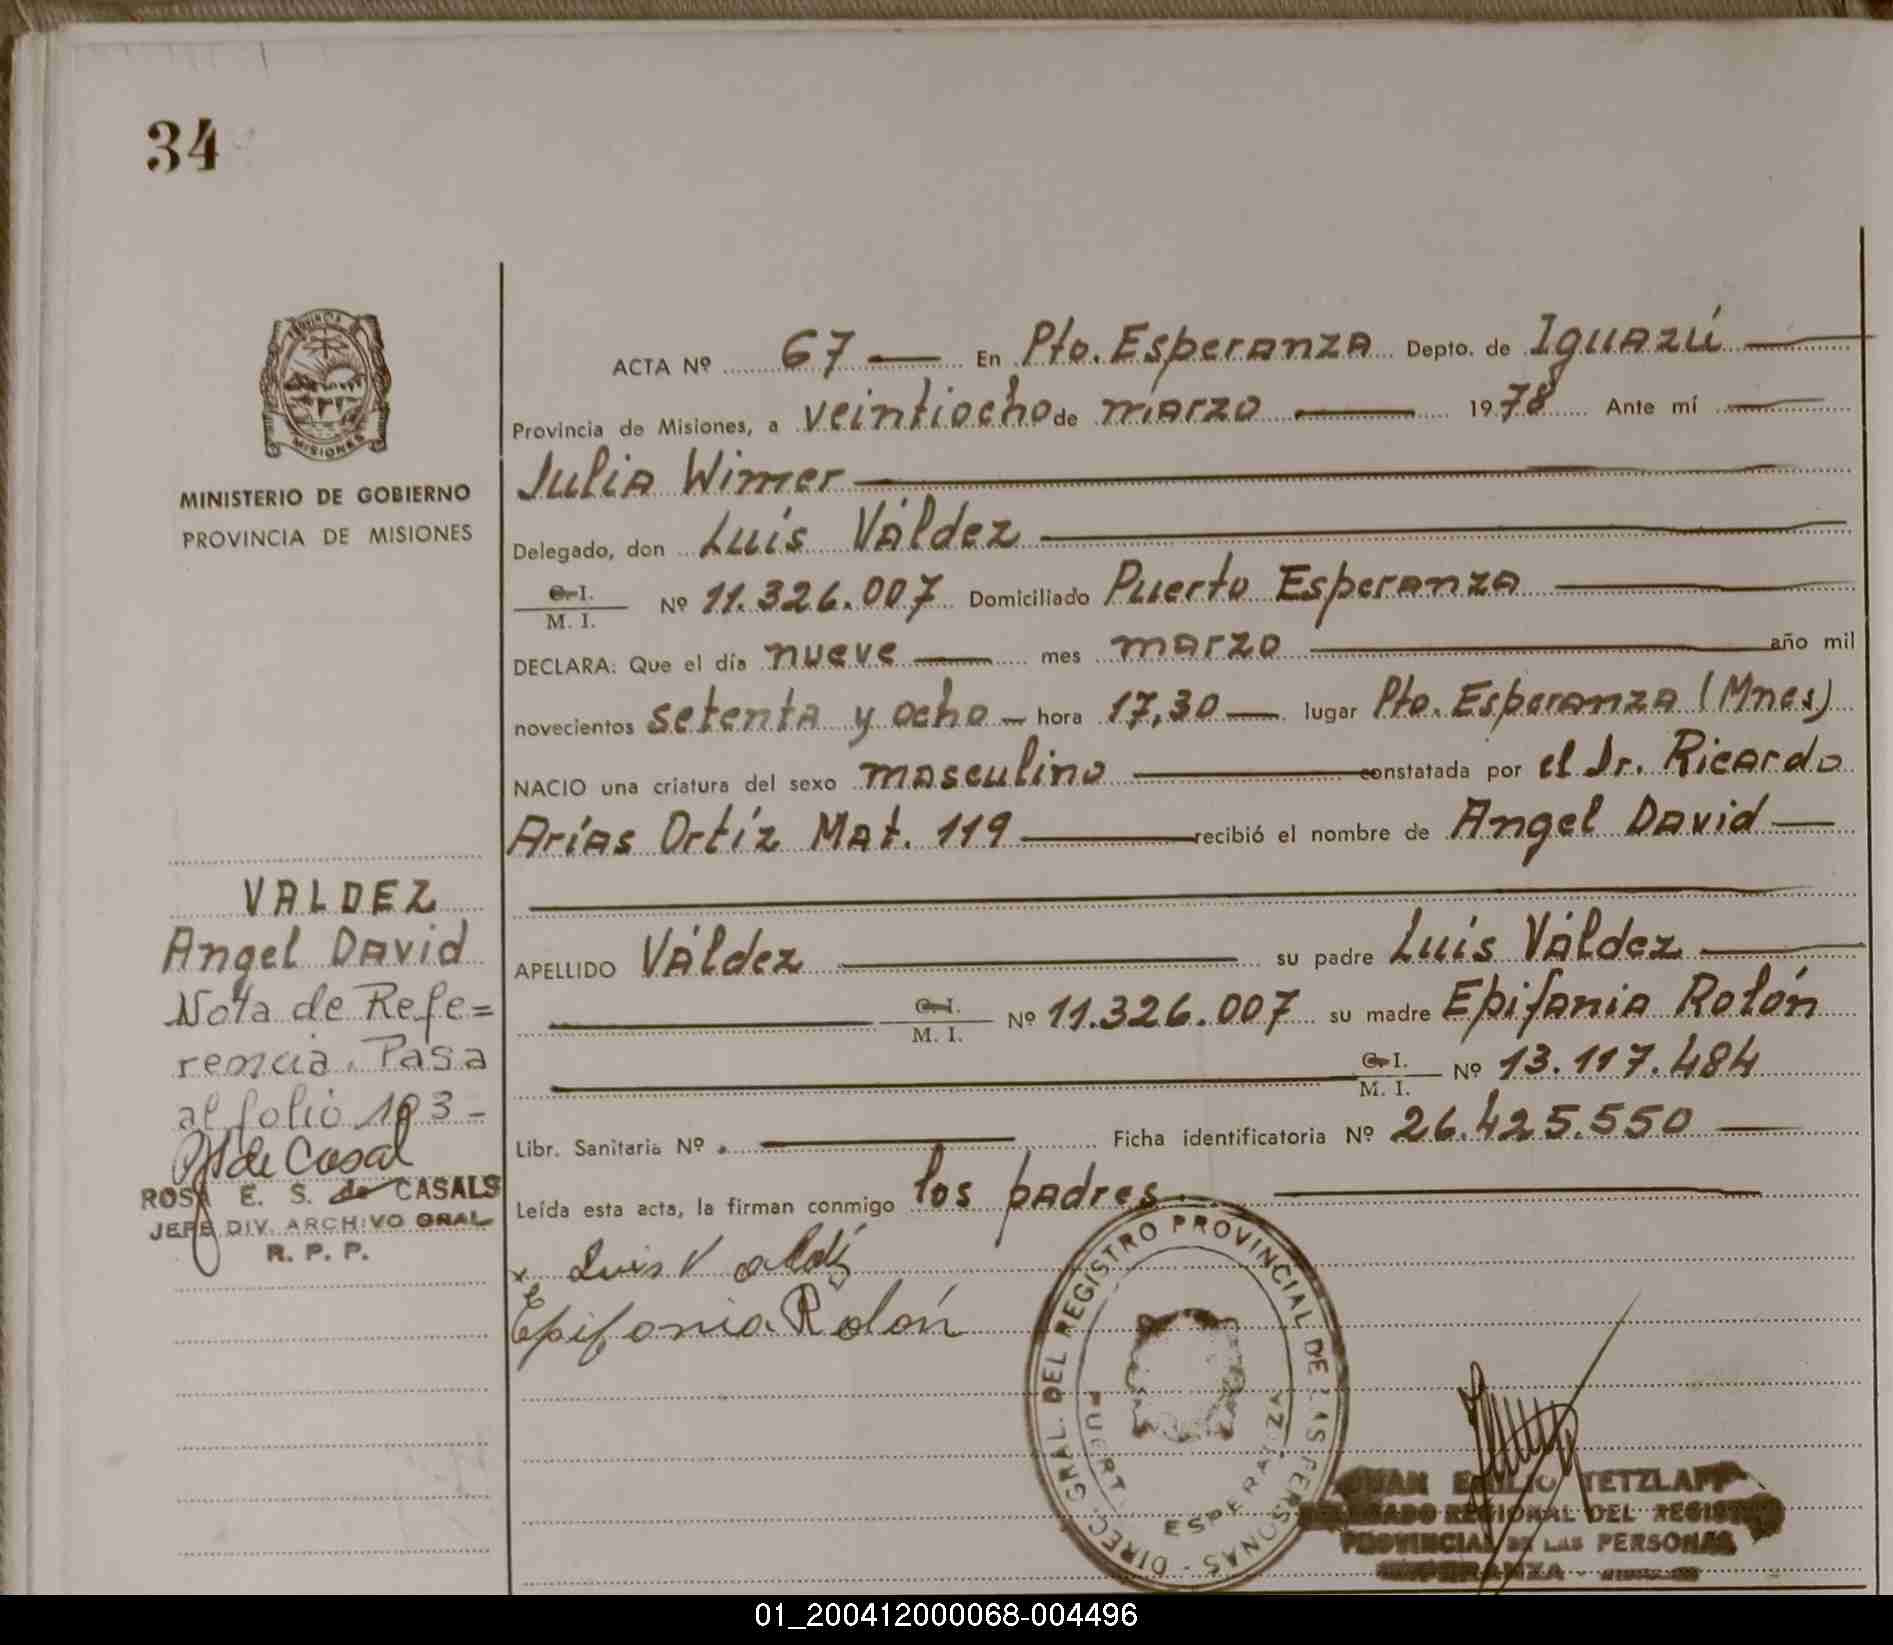 34
PROVINCIA
MISIONES
MINISTERIO DE GOBIERNO
PROVINCIA DE MISIONES
ACTA Nº 67 En Pto. Esperanza Depto. de Iguazú
Provincia de Misiones, a veintiocho de marzo 1978 Ante mí
Julia Wimer
Delegado, don Luis Váldez
C. I.
M. I. Nº 11.326.007 Domiciliado Puerto Esperanza
DECLARA: Que el día nueve mes marzo año mil
novecientos setenta y ocho hora 17,30 lugar Pto. Esperanza (Mnes)
NACIO una criatura del sexo masculino constatada por el Dr. Ricardo
Arías Ortíz Mat. 119 recibió el nombre de Angel David
APELLIDO Váldez su padre Luis Váldez
C. I.
M. I. Nº 11.326.007 su madre Epifania Rolón
C. I.
M. I. Nº 13.117.484
Libr. Sanitaria Nº Ficha identificatoria Nº 26.425.550
Leída esta acta, la firman conmigo los padres.
x Luis Valdez
Epifania Rolón
VALDEZ
Angel David
Nota de Refe=
rencia. Pasa
al folio 193-
de Casal
ROSA E. S. de CASALS
JEFE DIV. ARCHIVO GRAL
R. P. P.
DIREC. GRAL. DEL REGISTRO PROVINCIAL DE LAS PERSONAS -
PUERTO ESPERANZA
JUAN EMILIO TETZLAFF
DELEGADO REGIONAL DEL REGISTRO
PROVINCIAL DE LAS PERSONAS
ESPERANZA -
01_200412000068-004496